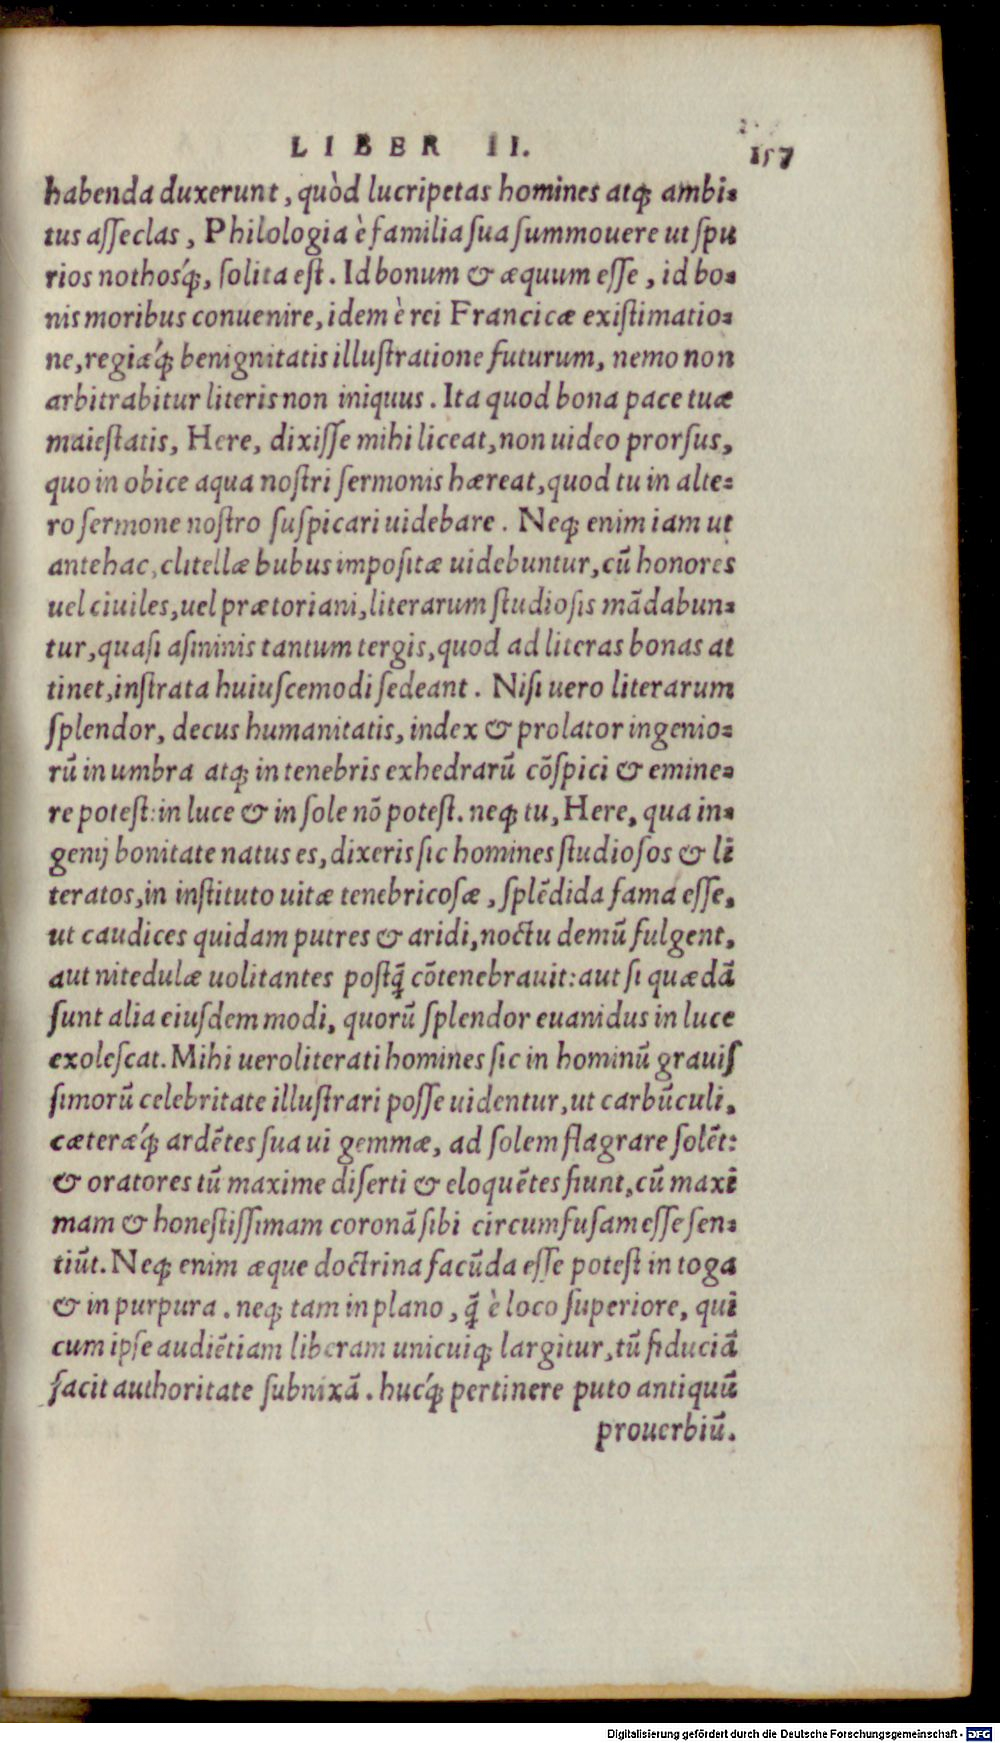 LIBER II.
157
habenda duxerunt, quòd lucripetas homines atq; ambi-
tus asseclas, Philologia è familia sua summouere ut spu
rios nothosq́;, solita est. Id bonum & æquum esse, id bo-
nis moribus conuenire, idem è rei Francicæ existimatio-
ne, regiæq́; benignitatis illustratione futurum, nemo non
arbitrabitur literis non iniquus. Ita quod bona pace tuæ
maiestatis, Here, dixisse mihi liceat, non uideo prorsus,
quo in obice aqua nostri sermonis hæreat, quod tu in alte-
ro sermone nostro suspicari uidebare. Neq; enim iam ut
antehac, clitellæ bubus impositæ uidebuntur, cū honores
uel ciuiles, uel prætoriani, literarum studiosis mādabun-
tur, quasi asininis tantum tergis, quod ad literas bonas at
tinet, instrata huiuscemodi sedeant. Nisi uero literarum
splendor, decus humanitatis, index & prolator ingenio-
rū in umbra atq; in tenebris exhedrarū cōspici & emine-
re potest: in luce & in sole nō potest. neq; tu, Here, qua in-
genij bonitate natus es, dixeris sic homines studiosos & li
teratos, in instituto uitæ tenebricosæ, splēdida fama esse,
ut caudices quidam putres & aridi, noctu demū fulgent,
aut nitedulæ uolitantes postq̄ cōtenebrauit: aut si quædā
sunt alia eiusdem modi, quorū splendor euanidus in luce
exolescat. Mihi uero literati homines sic in hominū grauis
simorū celebritate illustrari posse uidentur, ut carbūculi,
cæteræq́; ardētes sua ui gemmæ, ad solem flagrare solēt:
& oratores tū maxime diserti & eloquētes fiunt, cū maxi
mam & honestissimam coronā sibi circumfusam esse sen-
tiūt. Neq; enim æque doctrina facūda esse potest in toga
& in purpura. neq; tam in plano, q̄ è loco superiore, qui
cum ipse audiētiam liberam unicuiq; largitur, tū fiduciā
facit authoritate subnixā. hucq́; pertinere puto antiquū
prouerbiū.
Digitalisierung gefördert durch die Deutsche Forschungsgemeinschaft - DFG